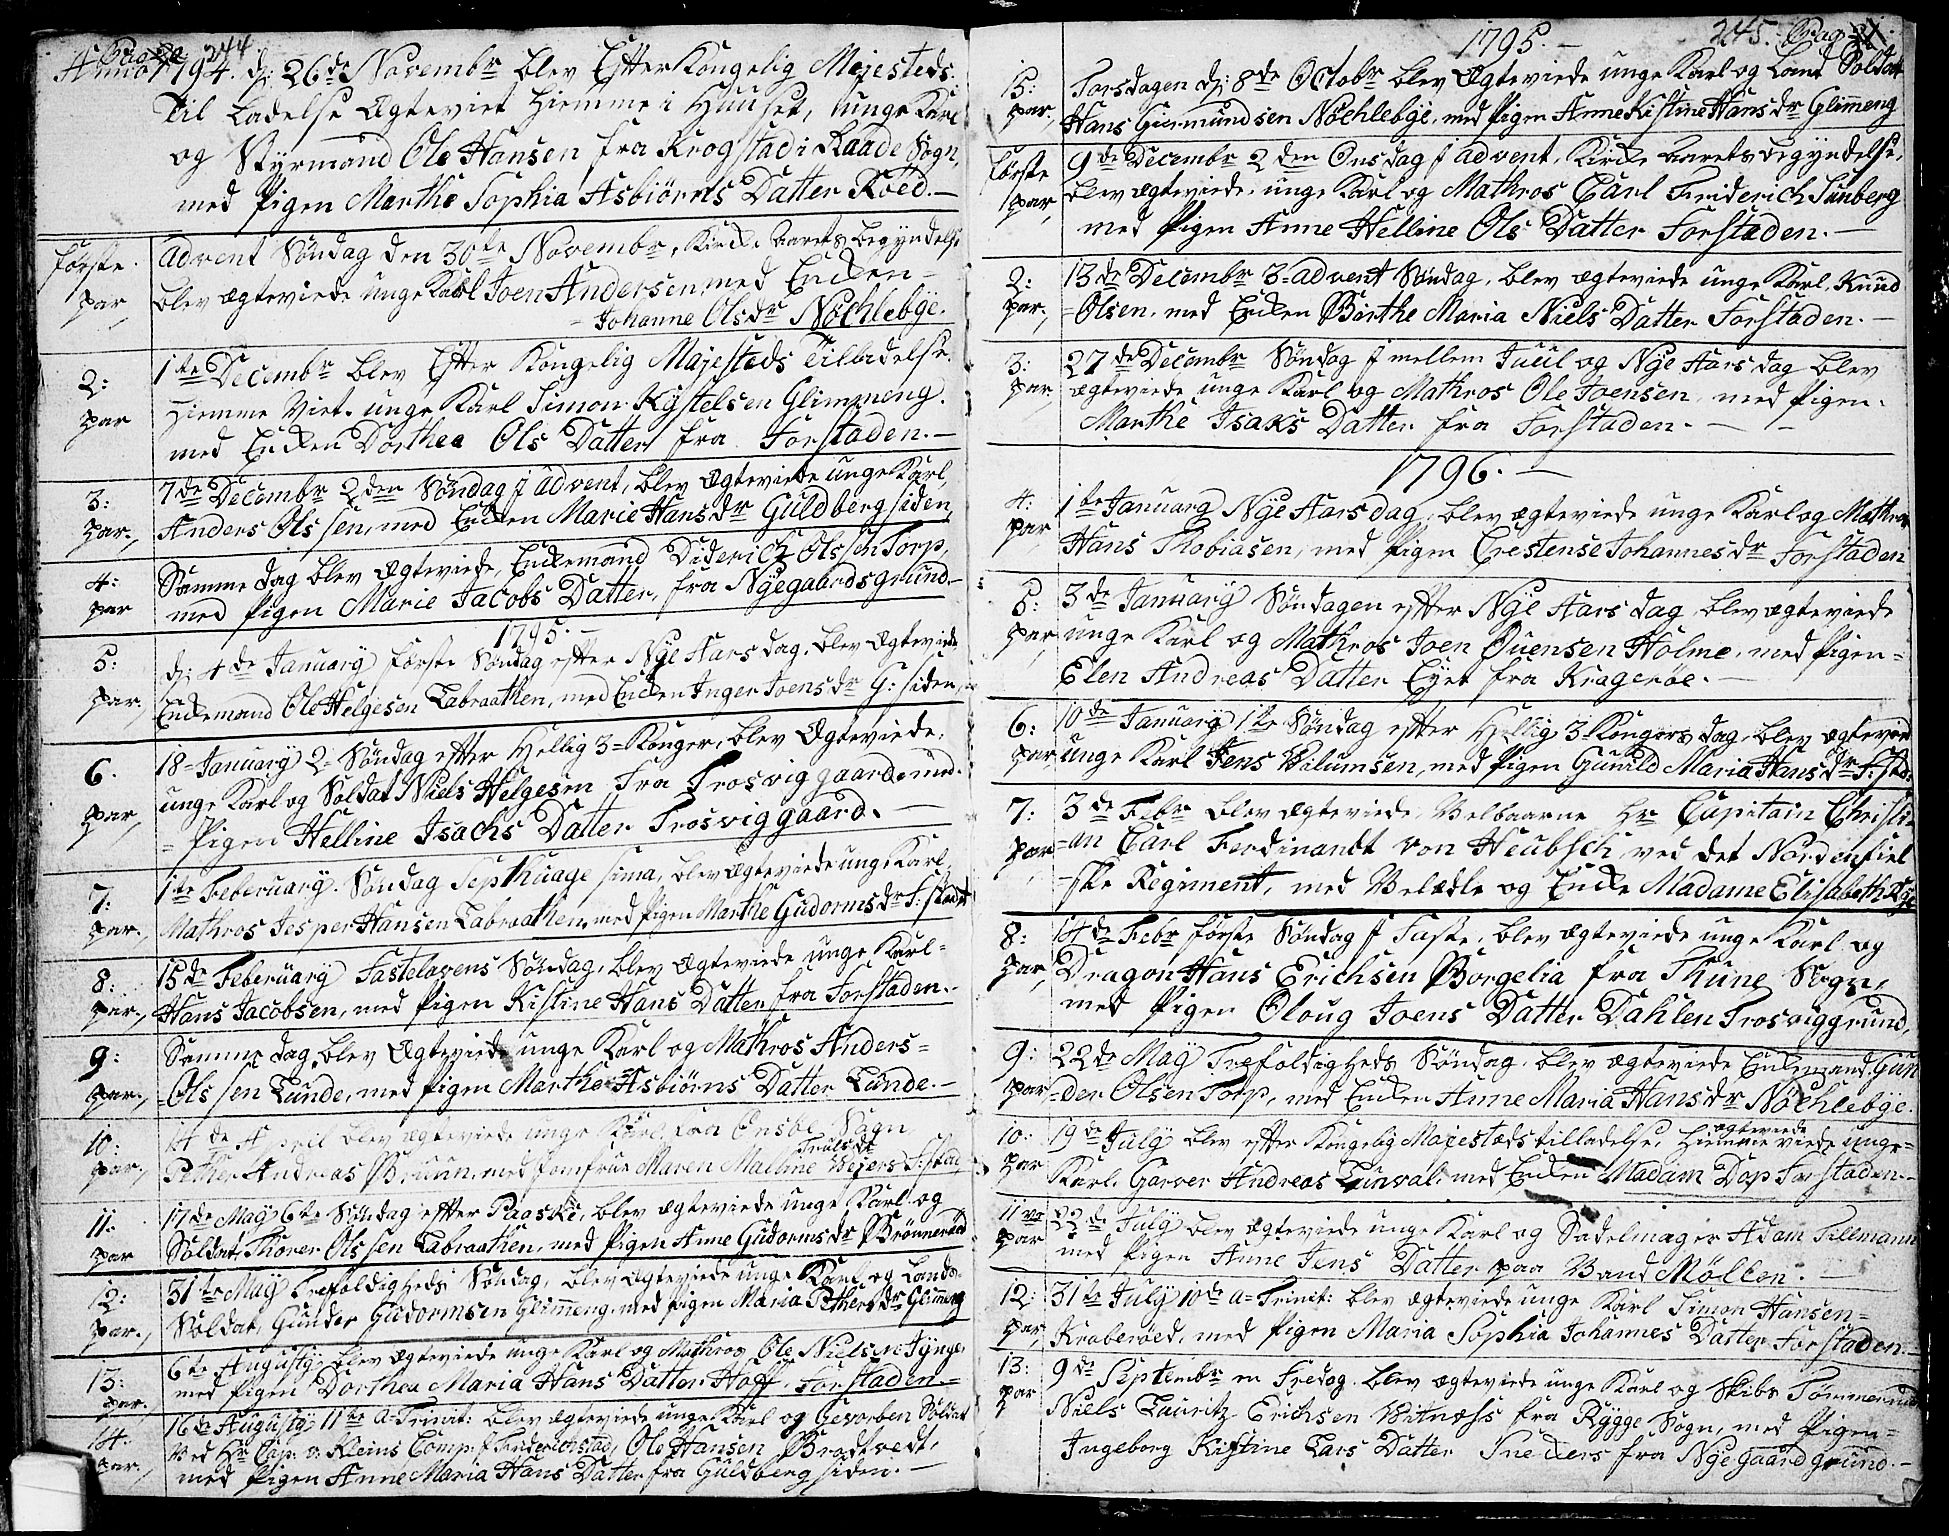 Pag 244
Anno 1794. d: 26de Novembr blev Efter Kongelig Majesteds
Til Ladelse Ægteviet hiemme i Huuset, unge Karl
og Styrmand Ole Hansen fra Krogstad i Raade Sogn,
med Pigen Marthe Sophia Asbiørns Datter Röed.—
første par Advent Søndag den 30te Novembr, Kirke Aarets begyndelse
blev ægteviede unge Karl Joen Andersen, med Enken
Johanne Olsdr Nøchlebye.
2: par 1te Decembr blev Efter Kongelig Majesteds Tilladelse
hiemme Viet. unge Karl Simon Kystelsen Glimmeng.
med Enken Dorthea Ols Datter fra Forstaden.—
3: par, 7de Decembr 2den Søndag i Advent, blev Ægteviede unge Karl,
Anders Olssen, med Enken Marie Hansdr Guldbergsiden,
4: par Samme dag blev Ægteviede, Enkemand Diderich Olssen Torp,
med Pigen Marie Jacobs Datter, fra Nyegaardsgrund—
1795.—
5: par, d: 4de January første Søndag efter Nye Aars dag, blev Ægteviede
Enkemand Ole Helgesen Labraathen, med Enken Inger Joensdr G: siden,
6. par, 18 January 2 Søndag efter Hellig 3=Konger, blev Ægteviede,
unge Karl og Soldat Niels Helgesen fra Trosviggaard, med
Pigen Helline Isachs Datter Trosviggaard.—
7: par, 1te Februarÿ. Søndag Septhuagesima, blev Ægteviede unge Karl,
Mathros Jesper Hansen Labraathen, med Pigen Marthe Gudormsdr F: stad
8: par, 15de Februarÿ Fastelavens Søndag, blev Ægteviede unge Karl=
Hans Jacobsen, med Pigen Kistine Hans Datter fra Forstaden.
9: par, Samme dag, blev Ægteviede unge Karl og Mathros Anders=
=Olssen Lunde, med Pigen Marthe Asbiørns Datter Lunde.—
10: par, 14de April blev ægteviede unge Karl fra Onsøe Sogn
Truls dr
Pether Andreas Bruun, med Jomfrue Maren Malline Beyers F: stad
11: par 17de Maÿ 6te Søndag efter Paaske, blev ægteviede unge Karl og
Soldat, Thorer Olssen Labraathen, med Pigen Anne Gudormsdr Brönnerød
12: par, 31te Maÿ Trefoldigheds Søndag, blev ægteviede unge Karl og Lands
Soldat, Gunder Gudormsen Glimmeng, med Pigen Maria Pethersdr Glimmeng
13: par, 6te Augustÿ blev ægteviede unge Karl og Mathros Ole Nielsen
med Pigen Dorthea Maria Hans Datter Hoff. Forstaden.—
14: par, 16de Augustÿ 11te a=Trinit: blev ægteviede unge Karl og Gevorben Soldat
ved Hr Cap: v: Kleins Comp: i Friderichstad, Ole Hansen Brodtvedt,
med Pigen Anne Maria Hans Datter fra Guldbergsiden.—
1795.—
245. Pag
15: par, Torsdagen d: 8de Octobr blev Ægteviede unge Karl og Land Soldat
Hans Giermundsen Nøchlebye, med Pigen Anne Kistine Hansdr Glimmeng
første par, 9de Decembr 2den Onsdag i Advent, Kirke Aarets begyndelse,
blev ægteviede, unge Karl og Mathros Carl Friderich Sunberg
med Pigen Anne Helline Ols Datter Forstaden.—
2: par, 13de Decembr 3=advent Søndag, blev ægteviede unge Karl, Knud
=Olsen, med Enken Barthe Maria Niels Datter Forstaden.—
3: par, 27de Decembr Søndag i mellem Juul og Nye Aars dag blev
ægteviede unge Karl og Mathros Ole Joensen, med Pigen.
Marthe Isaks Datter fra Forstaden.—
1796.—
4: par 1te January Nye Aarsdag, blev ægteviede unge Karl og Mathros
Hans Thobiasen, med Pigen Crestense Johannesdr Forstaden
5: par, 3de January Søndagen efter Nye Aars dag, blev ægteviede
unge Karl og Mathros Joen Ouensen Holme, med Pigen=
Elen Andreas Datter Eyer fra Kragerøe.—
6: par 10de January 1te Søndag efter Hellig 3 Kongers dag, blev ægteviede
unge Karl Jens Wilumsen, med Pigen Gunild Maria Hansdr F: stad
7: par 3de Febr blev ægteviede, Velbaarne Hr Capitain Christi=
=an Carl Ferdinandt von Heubsch, ved det Nordenfiel
=ske Regiment, med Velædle og Enke Madame Elisabeth
8: par, 14de Febr første Søndag i Faste, blev ægteviede unge Karl og
Dragon Hans Erichsen Borgelia fra Thune Sogn,
med Pigen Oloug Joens Datter Dahlen Trosviggrund,
9: par 22de Maÿ Trefoldigheds Søndag, blev ægteviede Enkemand Gun
=der Olsen Torp, med Enken Anne Maria Hansdr Nøchlebye.
10: par 19de Julÿ blev efter Kongelig Majestæds tilladelse, hiemme ægteviede viede unge=
Karl, Garver Andreas Lunval, med Enken Madam Dop Forstaden.—
11ve par 22de Julÿ blev ægteviede unge Karl og Sadelmager Adam Tillmann
med Pigen Anne Jens Datter paa Vand Møllen.—
12: par, 31te Julÿ 10de a=Trinit: blev ægteviede unge Karl Simon Hansen=
Kraberøed, med Pigen Maria Sophia Johannes Datter Forstaden.—
13: par 9de Septembr en Fredag, blev ægteviede unge Karl og Skibs Tømmermand
Niels Lauritz Erichsen Vitnæss fra Rÿgge Sogn, med Pigen=
Ingeborg Kistine Lars Datter Snekers fra Nyegaardgrund.—